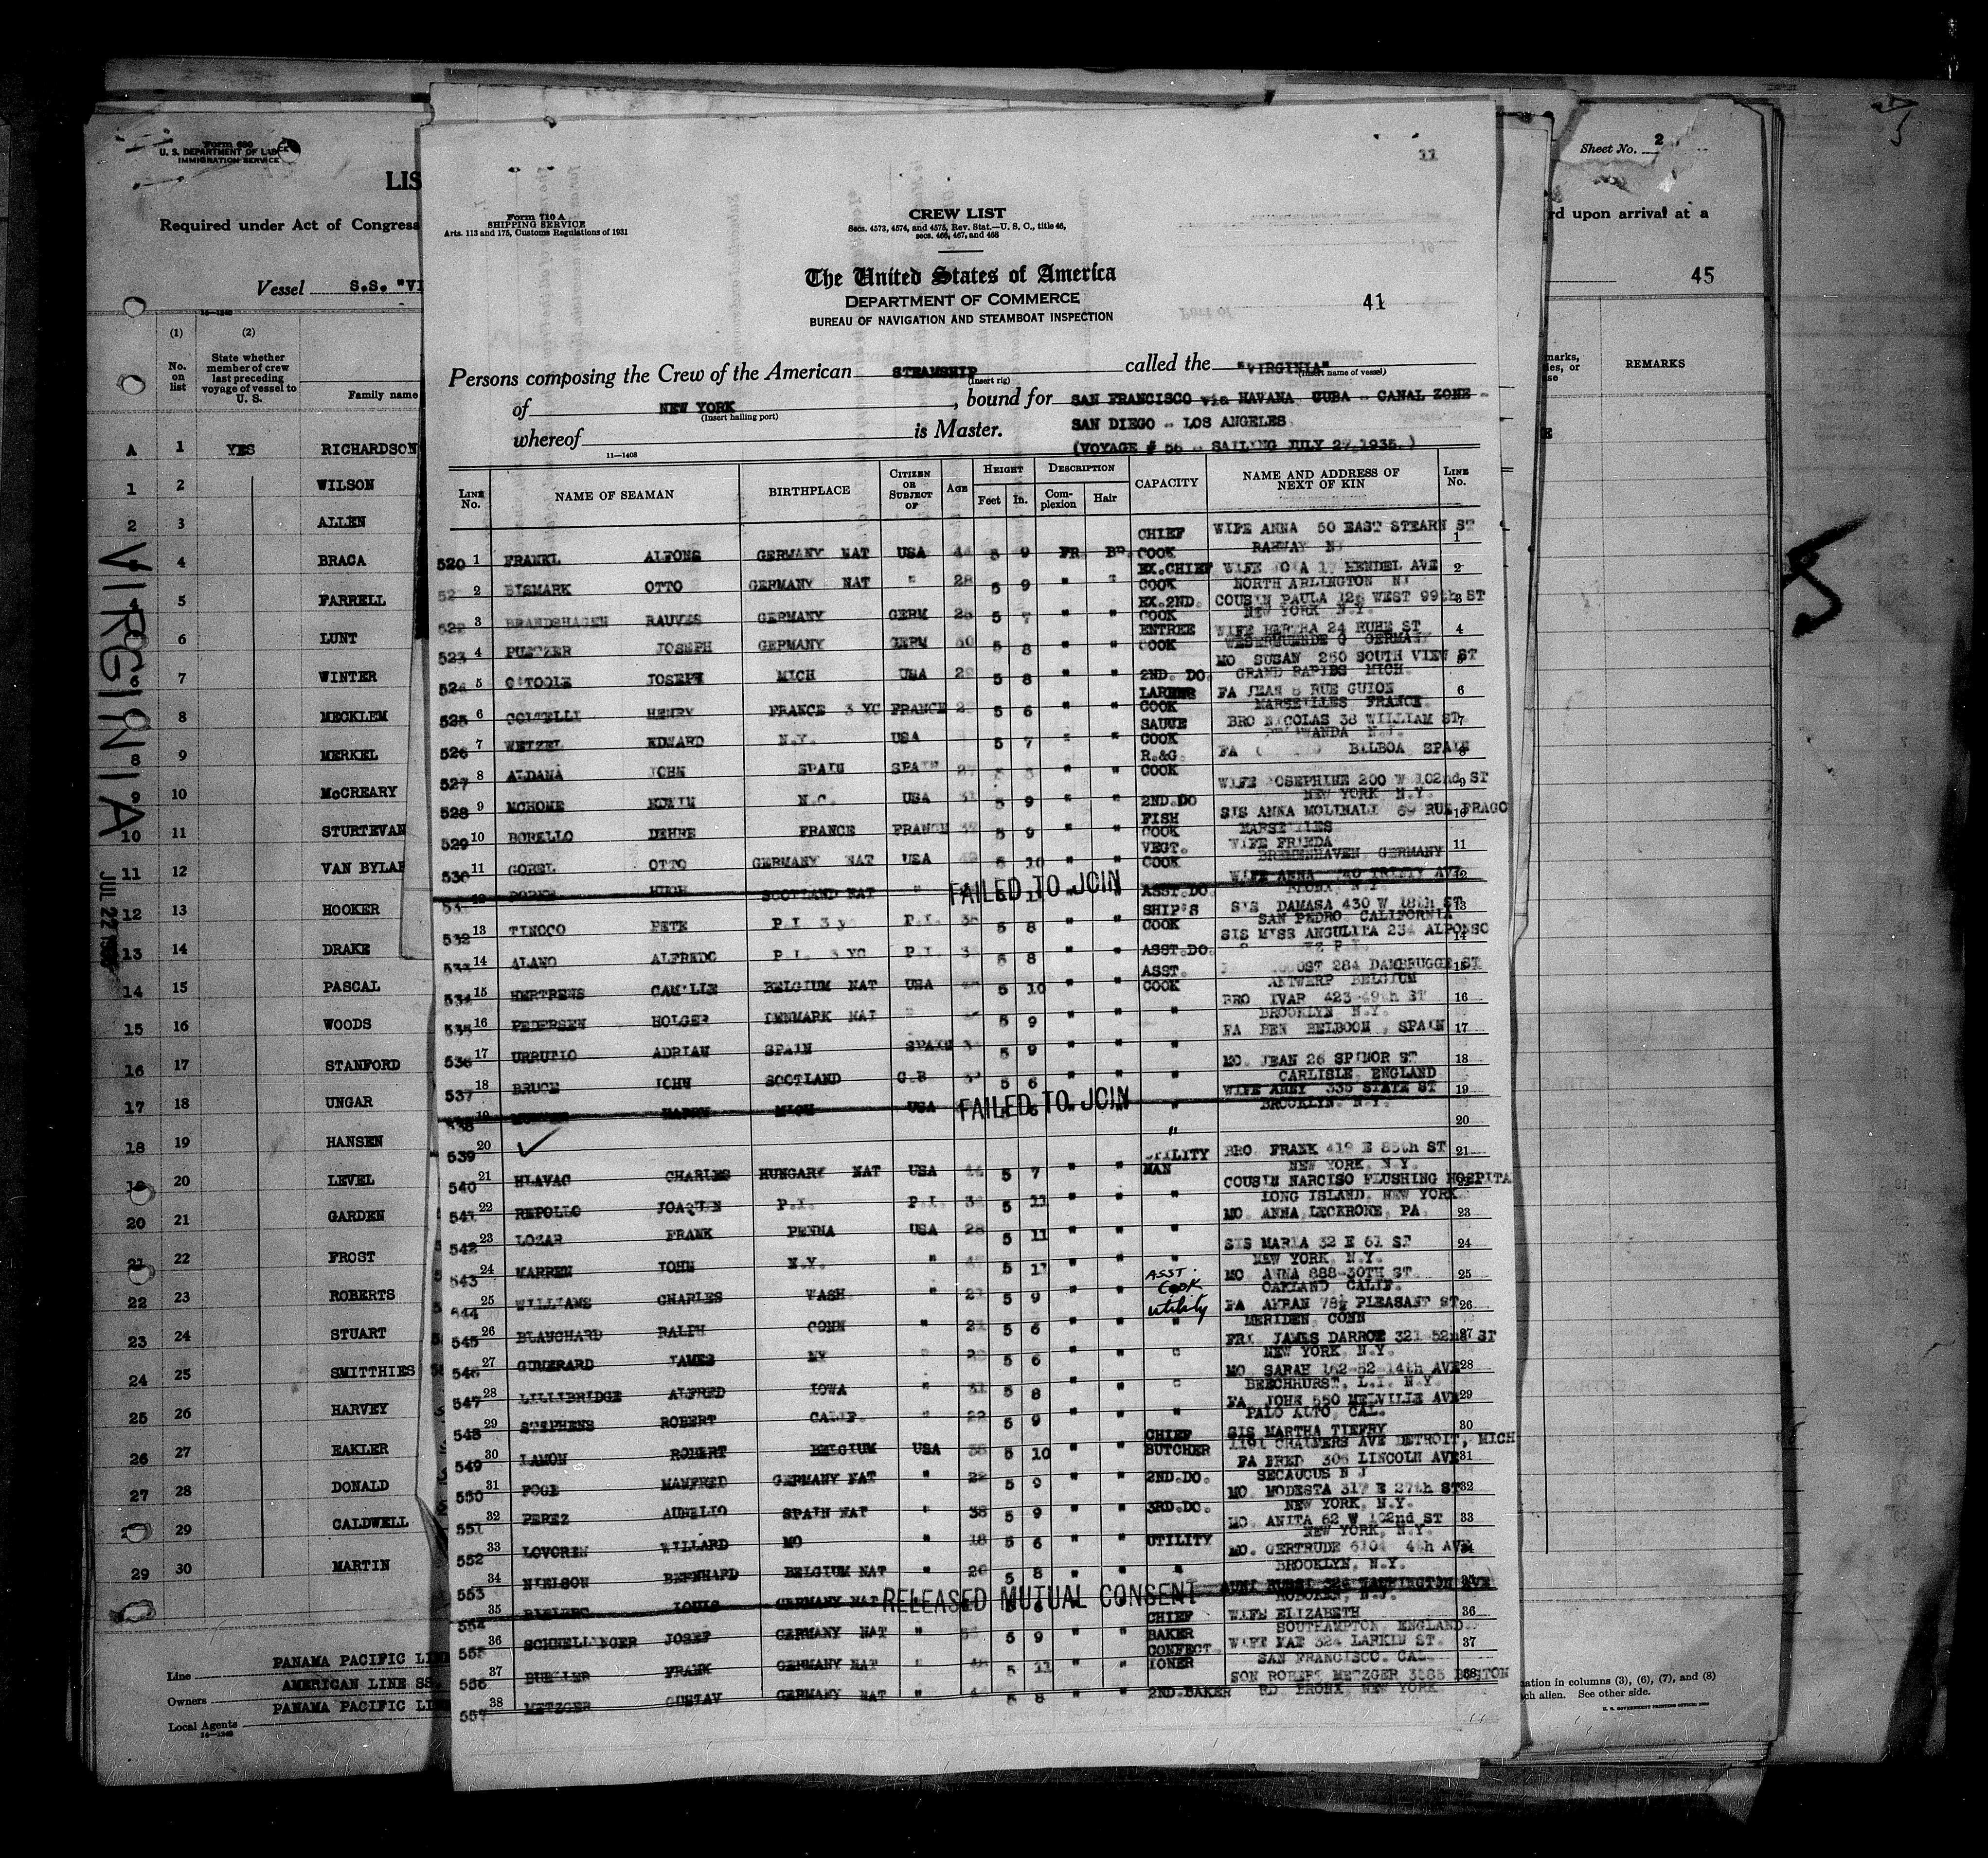 Form 680
U. S. DEPARTMENT OF LABOR
IMMIGRATION SERVICE
LIS
Required under Act of Congress
Vessel S.S. "VI
(1) (2)
No. on list
State whether member of crew last preceding voyage of vessel to U. S.
Family name
A 1 YES RICHARDSON
1 2 WILSON
2 3 ALLEN
4 BRACA
4 5 FARRELL
6 LUNT
6 7 WINTER
8 MECKLEM
8 9 MERKEL
9 10 McCREARY
10 11 STURTEVAN
11 12 VAN BYLAR
12 13 HOOKER
13 14 DRAKE
14 15 PASCAL
15 16 WOODS
16 17 STANFORD
17 18 UNGAR
18 19 HANSEN
20 LEVEL
20 21 GARDEN
21 22 FROST
22 23 ROBERTS
23 24 STUART
24 25 SMITTHIES
25 26 HARVEY
26 27 EAKLER
27 28 DONALD
29 CALDWELL
29 30 MARTIN
Line PANAMA PACIFIC LIN
Owners AMERICAN LINE SS.
Local Agents PANAMA PACIFIC LI
14—1240
VIRGINIA
JUL 22
11
Form 710 A
SHIPPING SERVICE
Arts. 113 and 175, Customs Regulations of 1931
CREW LIST
Secs. 4573, 4574, and 4575, Rev. Stat.—U. S. C., title 46,
secs. 466, 467, and 468
The United States of America
DEPARTMENT OF COMMERCE
BUREAU OF NAVIGATION AND STEAMBOAT INSPECTION
41
Persons composing the Crew of the American STEAMSHIP called the "VIRGINIA"
(Insert rig) (Insert name of vessel)
of NEW YORK, bound for SAN FRANCISCO via HAVANA, CUBA - CANAL ZONE -
(Insert hailing port)
whereof is Master. SAN DIEGO - LOS ANGELES.
(VOYAGE # 56 - SAILING JULY 27, 1935.)
11—1408
LINE No. NAME OF SEAMAN BIRTHPLACE CITIZEN OR SUBJECT OF AGE HEIGHT Feet In. DESCRIPTION Complexion Hair CAPACITY NAME AND ADDRESS OF NEXT OF KIN LINE No.
520 1 FRANKL ALFONS GERMANY NAT USA 44 5 9 FR BR CHIEF COOK WIFE ANNA 50 EAST STEARN ST RAHWAY NJ 1
2 BISMARK OTTO GERMANY NAT " 28 5 9 " " EX.CHIEF COOK WIFE 17 KENDEL AVE NORTH ARLINGTON NJ 2
522 3 BRANDSHAGEN RAUVES GERMANY GERM 5 7 " " EX.2ND. COOK COUSIN PAULA 126 WEST 99th ST NEW YORK N.Y. 3
523 4 PUETZER JOSEPH GERMANY GERM 5 8 " " ENTREE COOK WIFE BERTHA 24 RUHE ST GERMANY 4
524 5 O'TOOLE JOSEPH MICH USA 5 8 " " 2ND. DO. MO SUSAN 250 SOUTH VIEW ST GRAND RAPIDS MICH. 5
525 6 COLTELLI HENRY FRANCE 3 YC FRANCE 5 6 " " LARDER COOK FA JEAN 8 RUE GUION MARSEILLES FRANCE. 6
526 7 WETZEL EDWARD N.Y. USA 5 7 " " SAUCE COOK BRO NICOLAS 38 WILLIAM ST 7
527 8 ALDANA JOHN SPAIN SPAIN " " R.&G. COOK FA BALBOA SPAIN 8
528 9 MCHONE EDWIN N.C. USA 31 5 9 " " 2ND.DO WIFE JOSEPHINE 200 W 102nd ST NEW YORK N.Y. 9
529 10 BORELLO DEHRE FRANCE FRANCE 5 9 " " FISH COOK SIS ANNA MOLINALI 69 RUE PRAGO MARSEILLES 10
530 11 GOBEL OTTO GERMANY NAT USA 5 10 " " VEGT. COOK WIFE FRIEDA BREMENHAVEN GERMANY 11
12 HUGH SCOTLAND NAT " FAILED TO JOIN ASST.DO WIFE ANNA 740 TRINITY AVE BRONX, N.Y. 12
532 13 TINOCO PETE P.I. P.I. 38 5 8 " " SHIP'S COOK SIS DAMASA 430 W 18th ST SAN PEDRO CALIFORNIA 13
533 14 ALANO ALFREDO P.I. 3 YC P.I. 5 8 " " ASST.DO. SIS MISS ANGULITA 234 ALFONSO 14
534 15 HERTRENS CAMILLE BELGIUM NAT USA 5 10 " " ASST. COOK 284 DAMBRUGGE ST ANTWERP BELGIUM 15
535 16 PEDERSEN HOLGER DENMARK NAT " 5 9 " " " BRO IVAR 423-49th ST BROOKLYN N.Y. 16
536 17 URRUTIO ADRIAN SPAIN SPAIN 5 9 " " " FA BEN BELBOOM, SPAIN 17
537 18 BRUCE JOHN SCOTLAND G.B 5 6 " " " MO. JEAN 26 SPINOR ST CARLISLE, ENGLAND 18
538 19 HARRY MICH USA FAILED TO JOIN " WIFE AMEY 335 STATE ST BROOKLYN. N.Y. 19
539 20 ✓ " 20
540 21 HLAVAC CHARLES HUNGARY NAT USA 44 5 7 " " UTILITY MAN BRO. FRANK 419 E 85th ST NEW YORK, N.Y. 21
541 22 REPOLLO JOAQUIN P.I. P.I. 5 11 " " " COUSIN NARCISO FLUSHING HOSPITA LONG ISLAND, NEW YORK 22
542 23 LOZAR FRANK PENNA USA 28 5 11 " " " MO. ANNA, LECKRONE, PA. 23
543 24 WARREN JOHN N.Y. " 5 11 " " " SIS MARIA 32 E 61 ST NEW YORK, N.Y. 24
544 25 WILLIAMS CHARLES WASH " 5 9 " " ASST. COOK utility MO ANNA 888-30TH ST. OAKLAND CALIF. 25
545 26 BLANCHARD RALPH CONN " 21 5 6 " " " FA AKRAN 78½ PLEASANT ST MERIDEN, CONN 26
546 27 GUMERARD JAMES NY " 5 6 " " " FRI. JAMES DARROE 321 52nd ST NEW YORK, N.Y. 27
547 28 LILLIBRIDGE ALFRED IOWA " 31 5 8 " " " MO. SARAH 162-52-14th AVE BEECHHURST, L.I. N.Y. 28
548 29 STEPHENS ROBERT CALIF. " 22 5 9 " " " FA. JOHN 550 MELVILLE AVE PALO ALTO, CAL. 29
549 30 LAMON ROBERT BELGIUM USA 5 10 " " CHIEF BUTCHER SIS MARTHA TIEFRY 1191 CHALMERS AVE DETROIT, MICH 30
550 31 FOGE MANFRED GERMANY NAT " 22 5 9 " " 2ND.DO. FA FRED 306 LINCOLN AVE SECAUCUS N J 31
551 32 PEREZ AURELIO SPAIN NAT " 38 5 9 " " 3RD.DO. MO. MODESTA 317 E 27th ST NEW YORK, N.Y. 32
552 33 LOVORIN WILLARD MO " 18 5 6 " " UTILITY MO. ANITA 62 W 102nd ST NEW YORK, N.Y. 33
553 34 NIELSON BERNHARD BELGIUM NAT " 20 5 8 " " " MO. GERTRUDE 6104 4th AVE BROOKLYN, N.Y. 34
554 35 LOUIS GERMANY NAT RELEASED MUTUAL CONSENT HOBOKEN, N.J.
555 36 SCHNELLINGER JOSEF GERMANY NAT " 5 9 " " CHIEF BAKER WIFE ELIZABETH SOUTHAMPTON, ENGLAND 36
556 37 BUEHLER FRANK GERMANY NAT " 5 11 " " CONFECTIONER WIFE MAE 324 LARKIN ST. SAN FRANCISCO, CAL 37
557 38 METZGER GUSTAV GERMANY NAT " 5 8 " " 2ND.BAKER SON ROBERT METZGER 3585 BOSTON RD BRONX, NEW YORK 38
Sheet No. 2
rd upon arrival at a
45
REMARKS
ation in columns (3), (6), (7), and (8)
ch alien. See other side.
U. S. GOVERNMENT PRINTING OFFICE